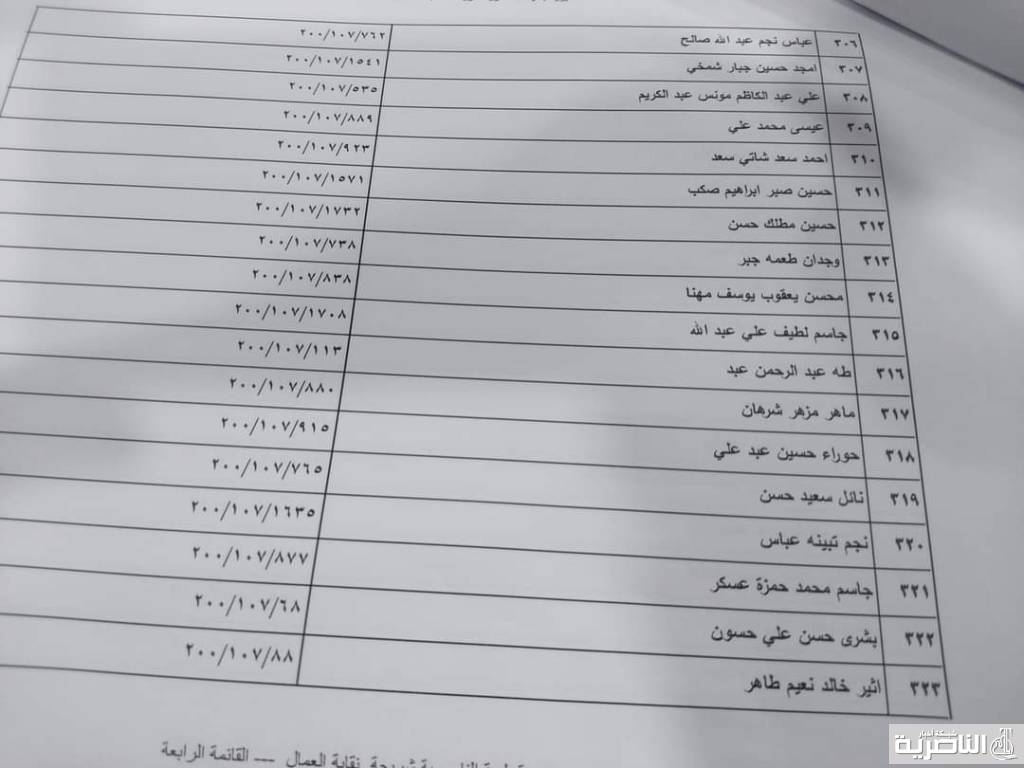 ٣٠٦ عباس نجم عبد الله صالح ٢٠٠/١٠٧/٧٦٢
٣٠٧ امجد حسين جبار شمخي ٢٠٠/١٠٧/١٥٤١
٣٠٨ علي عبد الكاظم مونس عبد الكريم ٢٠٠/١٠٧/٥٣٥
٣٠٩ عيسى محمد علي ٢٠٠/١٠٧/٨٨٩
٣١٠ احمد سعد شاتي سعد ٢٠٠/١٠٧/٩٢٣
٣١١ حسين صبر ابراهيم صكب ٢٠٠/١٠٧/١٥٧١
٣١٢ حسين مطلك حسن ٢٠٠/١٠٧/١٧٣٢
٣١٣ وجدان طعمه جبر ٢٠٠/١٠٧/٧٣٨
٣١٤ محسن يعقوب يوسف مهنا ٢٠٠/١٠٧/٨٣٨
٣١٥ جاسم لطيف علي عبد الله ٢٠٠/١٠٧/١٧٠٨
٣١٦ طه عبد الرحمن عبد ٢٠٠/١٠٧/١١٣
٣١٧ ماهر مزهر شرهان ٢٠٠/١٠٧/٨٨٠
٣١٨ حوراء حسين عبد علي ٢٠٠/١٠٧/٩١٥
٣١٩ نائل سعيد حسن ٢٠٠/١٠٧/٧٦٥
٣٢٠ نجم تبينه عباس ٢٠٠/١٠٧/١٦٣٥
٣٢١ جاسم محمد حمزة عسكر ٢٠٠/١٠٧/٨٧٧
٣٢٢ بشرى حسن علي حسون ٢٠٠/١٠٧/٦٨
٣٢٣ اثير خالد نعيم طاهر ٢٠٠/١٠٧/٨٨
نقابة العمال --- القائمة الرابعة
شبكة اخبار
الناصرية